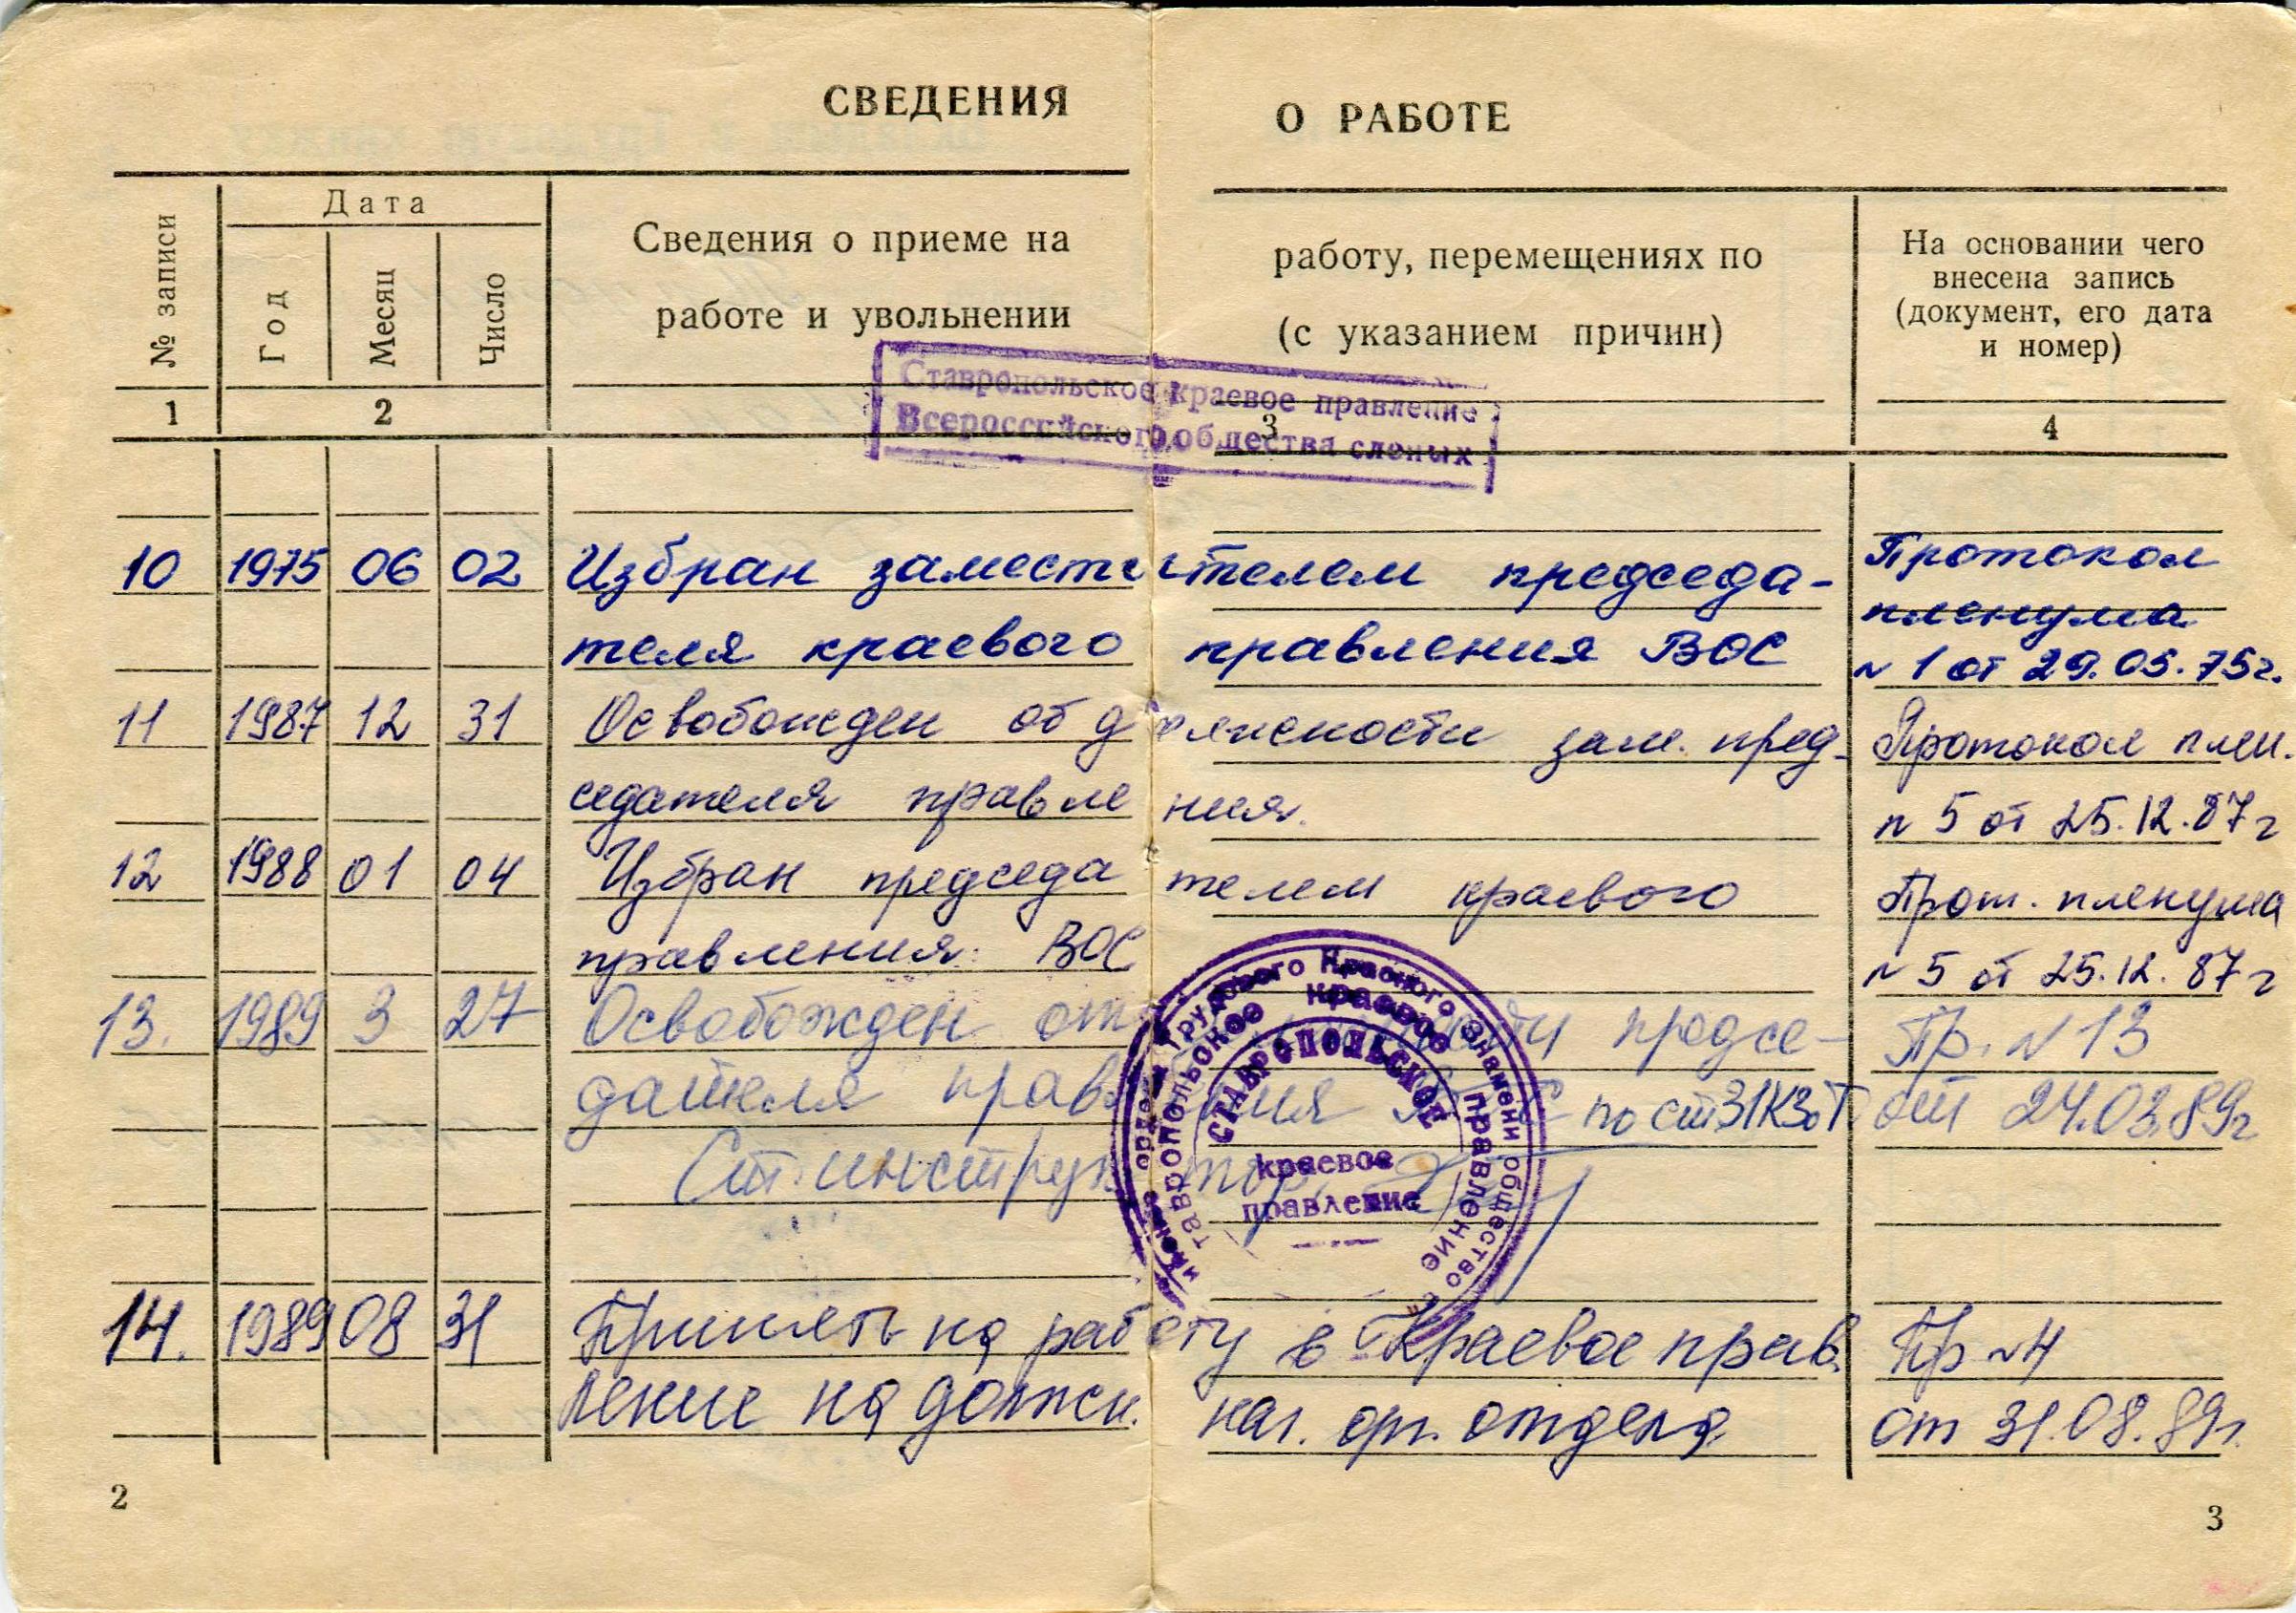 СВЕДЕНИЯ О РАБОТЕ
№ записи
Дата
Год
Месяц
Число
Сведения о приеме на работу, перемещениях по
работе и увольнении (с указанием причин)
На основании чего
внесена запись
(документ, его дата
и номер)
1 2 3 4
Ставропольское краевое правление
Всероссийского общества слепых
10 1975 06 02 Избран заместителем председа- Протокол
пленума
теля краевого правления ВОС № 1 от 29.05.75г.
11 1987 12 31 Освобожден от должности зам. пред- Протокол плен.
седателя правления. № 5 от 25.12.87г
12 1988 01 04 Избран председателем краевого Прот. пленума
правления ВОС № 5 от 25.12.87г
13. 1989 3 27 Освобожден от предсе- Пр. №13
дателя правления по ст 31 КЗоТ от 24.03.89г
Ст. инструктор
Трудового Красного Знамени общество
краевое правление
СТАВРОПОЛЬСКОЕ
краевое
правление
14. 1989 08 31 Принять на работу в Краевое прав. Пр №4
ление на должн. нач. орг. отдела. от 31.08.89г.
2
3